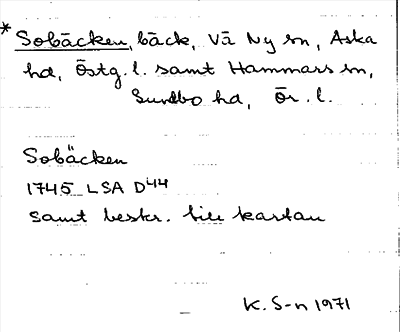 * Sobäcken, bäck, Vä Ny sn, Aska
hd, Östg. l. samt Hammars sn,
Sundbo hd, Ör. l.
Sobäcken
1745 LSA D44
samt beskr. till kartan
K. S-n 1971